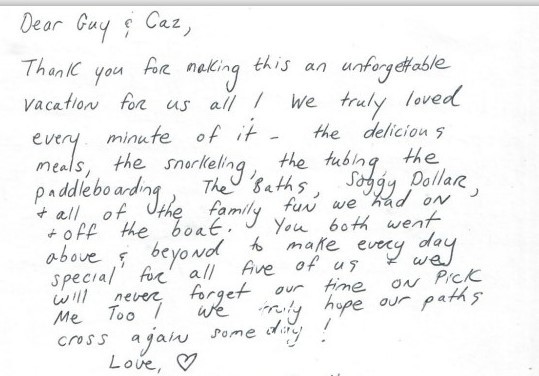 Dear Guy & Caz,
Thank you for making this an unforgettable
vacation for us all! We truly loved
every minute of it - the delicious
meals, the snorkeling, the tubing the
paddleboarding, The Baths, Soggy Dollar,
+ all of the family fun we had on
+ off the boat. You both went
above & beyond to make every day
special for all five of us + we
will never forget our time on Pick
Me Too! We truly hope our paths
cross again some day!
Love, ♡